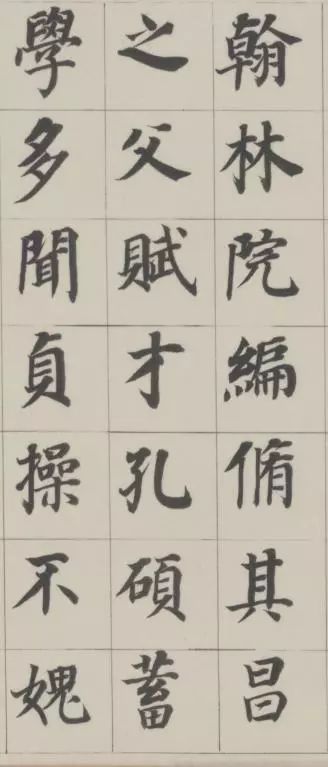 翰林院編脩其昌
之父賦才孔碩蓄
學多聞貞操不媿